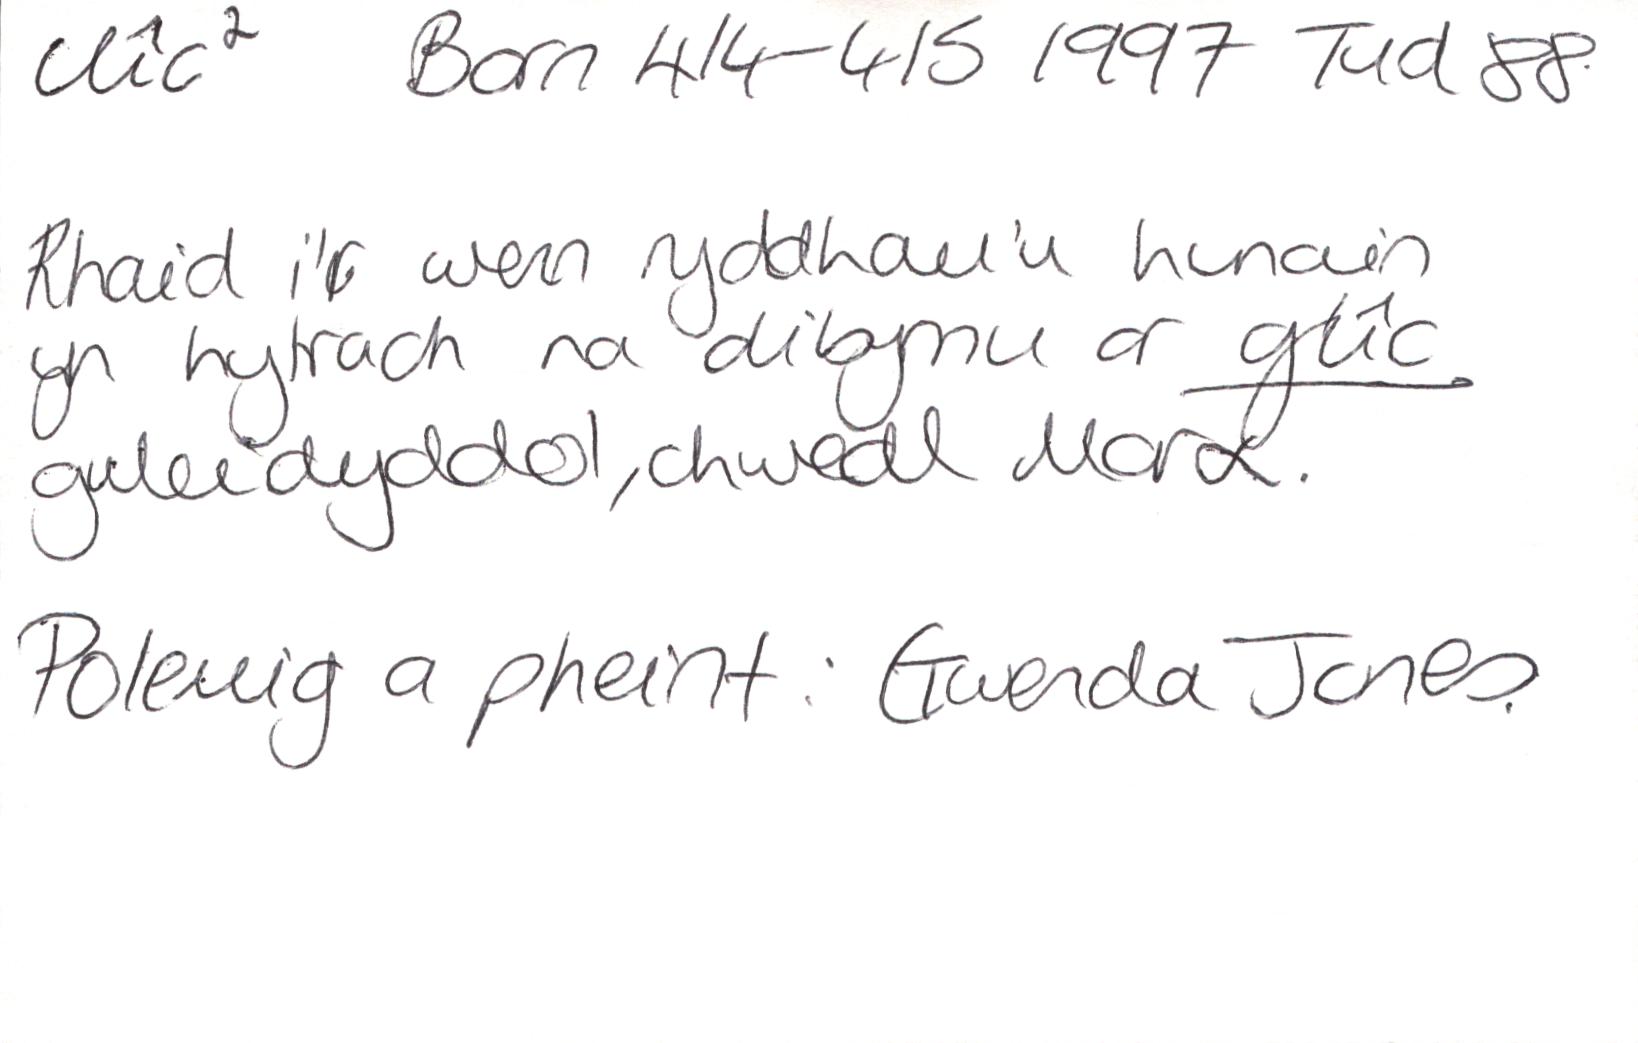 clîc² Barn 414-415 1997 Tud 88.
Rhaid i'r werin ryddhau'u hunain
yn hytrach na dibynnu ar glîc
gwleidyddol, chwedl Marx.
Polemig a pheint: Gwenda Jones.